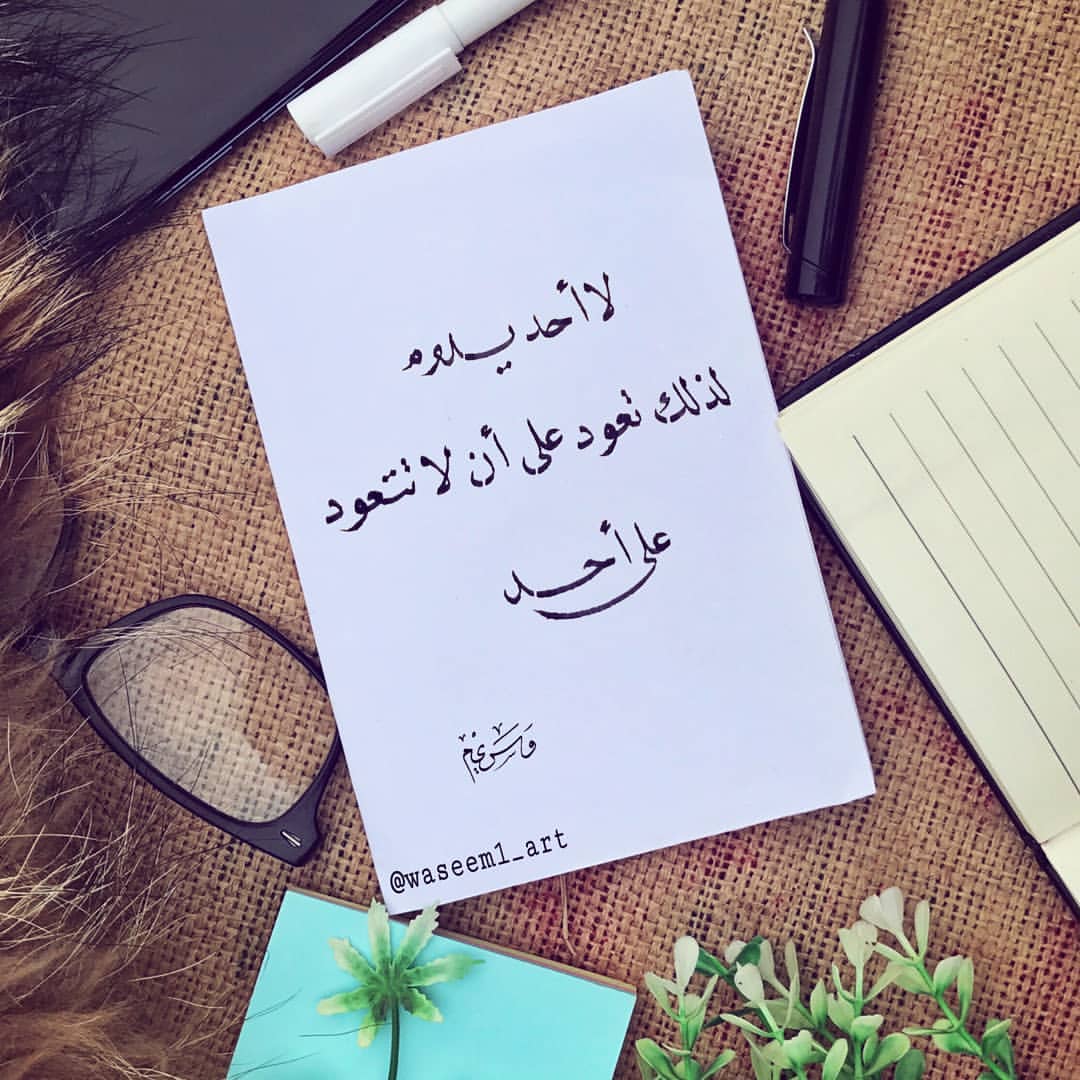 لا أحد يدوم
لذلك تعود على أن لا تتعود
على أحد
@waseem1_art